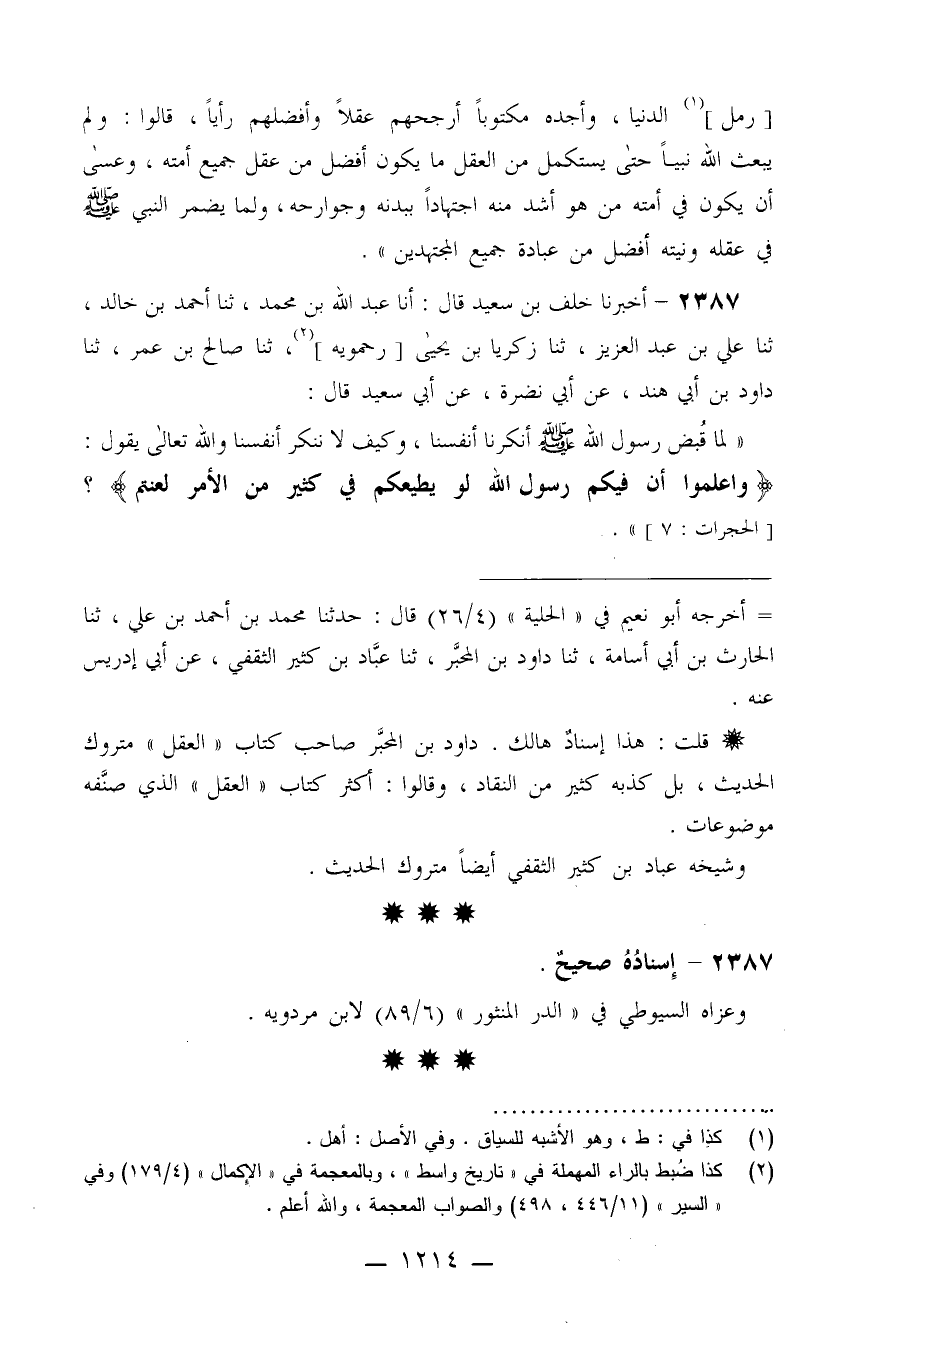 [ رمل ](١) الدنيا ، وأجده مكتوباً أرجحهم عقلاً وأفضلهم رأياً ، قالوا : ولم
يبعث الله نبيـاً حتىٰ يستكمل من العقل ما يكون أفضل من عقل جميع أمته ، وعسىٰ
أن يكون في أمته من هو أشد منه اجتهاداً ببدنه وجوارحه ، ولما يضمر النبي ﷺ
في عقله ونيته أفضل من عبادة جميع المجتهدين » .
٢٣٨٧ – أخبرنا خلف بن سعيد قال : أنا عبد الله بن محمد ، ثنا أحمد بن خالد ،
ثنا علي بن عبد العزيز ، ثنا زكريا بن يحيىٰ [ رحمويه ](٢)، ثنا صالح بن عمر ، ثنا
داود بن أبي هند ، عن أبي نضرة ، عن أبي سعيد قال :
« لما قُبض رسول الله ﷺ أنكرنا أنفسنا ، وكيف لا ننكر أنفسنا والله تعالىٰ يقول :
﴿ واعلموا أن فيكم رسول الله لو يطيعكم في كثير من الأمر لعنتم ﴾ ؟
[ الحجرات : ٧ ] » .
= أخرجه أبو نعيم في « الحلية » (٢٦/٤) قال : حدثنا محمد بن أحمد بن علي ، ثنا
الحارث بن أبي أسامة ، ثنا داود بن المحبَّر ، ثنا عبَّاد بن كثير الثقفي ، عن أبي إدريس
عنه .
✹ قلت : هذا إسنادٌ هالك . داود بن المحبَّر صاحب كتاب « العقل » متروك
الحديث ، بل كذبه كثير من النقاد ، وقالوا : أكثر كتاب « العقل » الذي صنَّفه
موضوعات .
وشيخه عباد بن كثير الثقفي أيضاً متروك الحديث .
✹ ✹ ✹
٢٣٨٧ – إسنادُهُ صحيحٌ .
وعزاه السيوطي في « الدر المنثور » (٨٩/٦) لابن مردويه .
✹ ✹ ✹
..............................
(١) كذا في : ط ، وهو الأشبه للسياق . وفي الأصل : أهل .
(٢) كذا ضُبط بالراء المهملة في « تاريخ واسط » ، وبالمعجمة في « الإكمال » (١٧٩/٤) وفي
« السير » (٤٤٦/١١ ، ٤٩٨) والصواب المعجمة ، والله أعلم .
— ١٢١٤ —